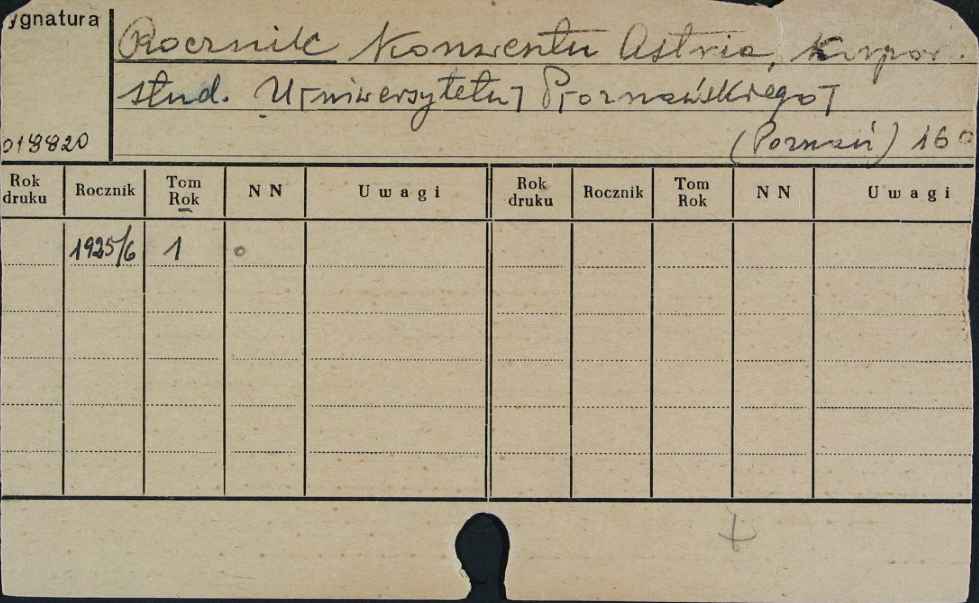 ygnatura
Rocznik Konwentu Astria, Korpor.
stud. U[niwersytetu] P[oznańskiego]
018820
(Poznań) 16°
Rok druku Rocznik Tom Rok NN Uwagi Rok druku Rocznik Tom Rok NN Uwagi
1925/6 1 °